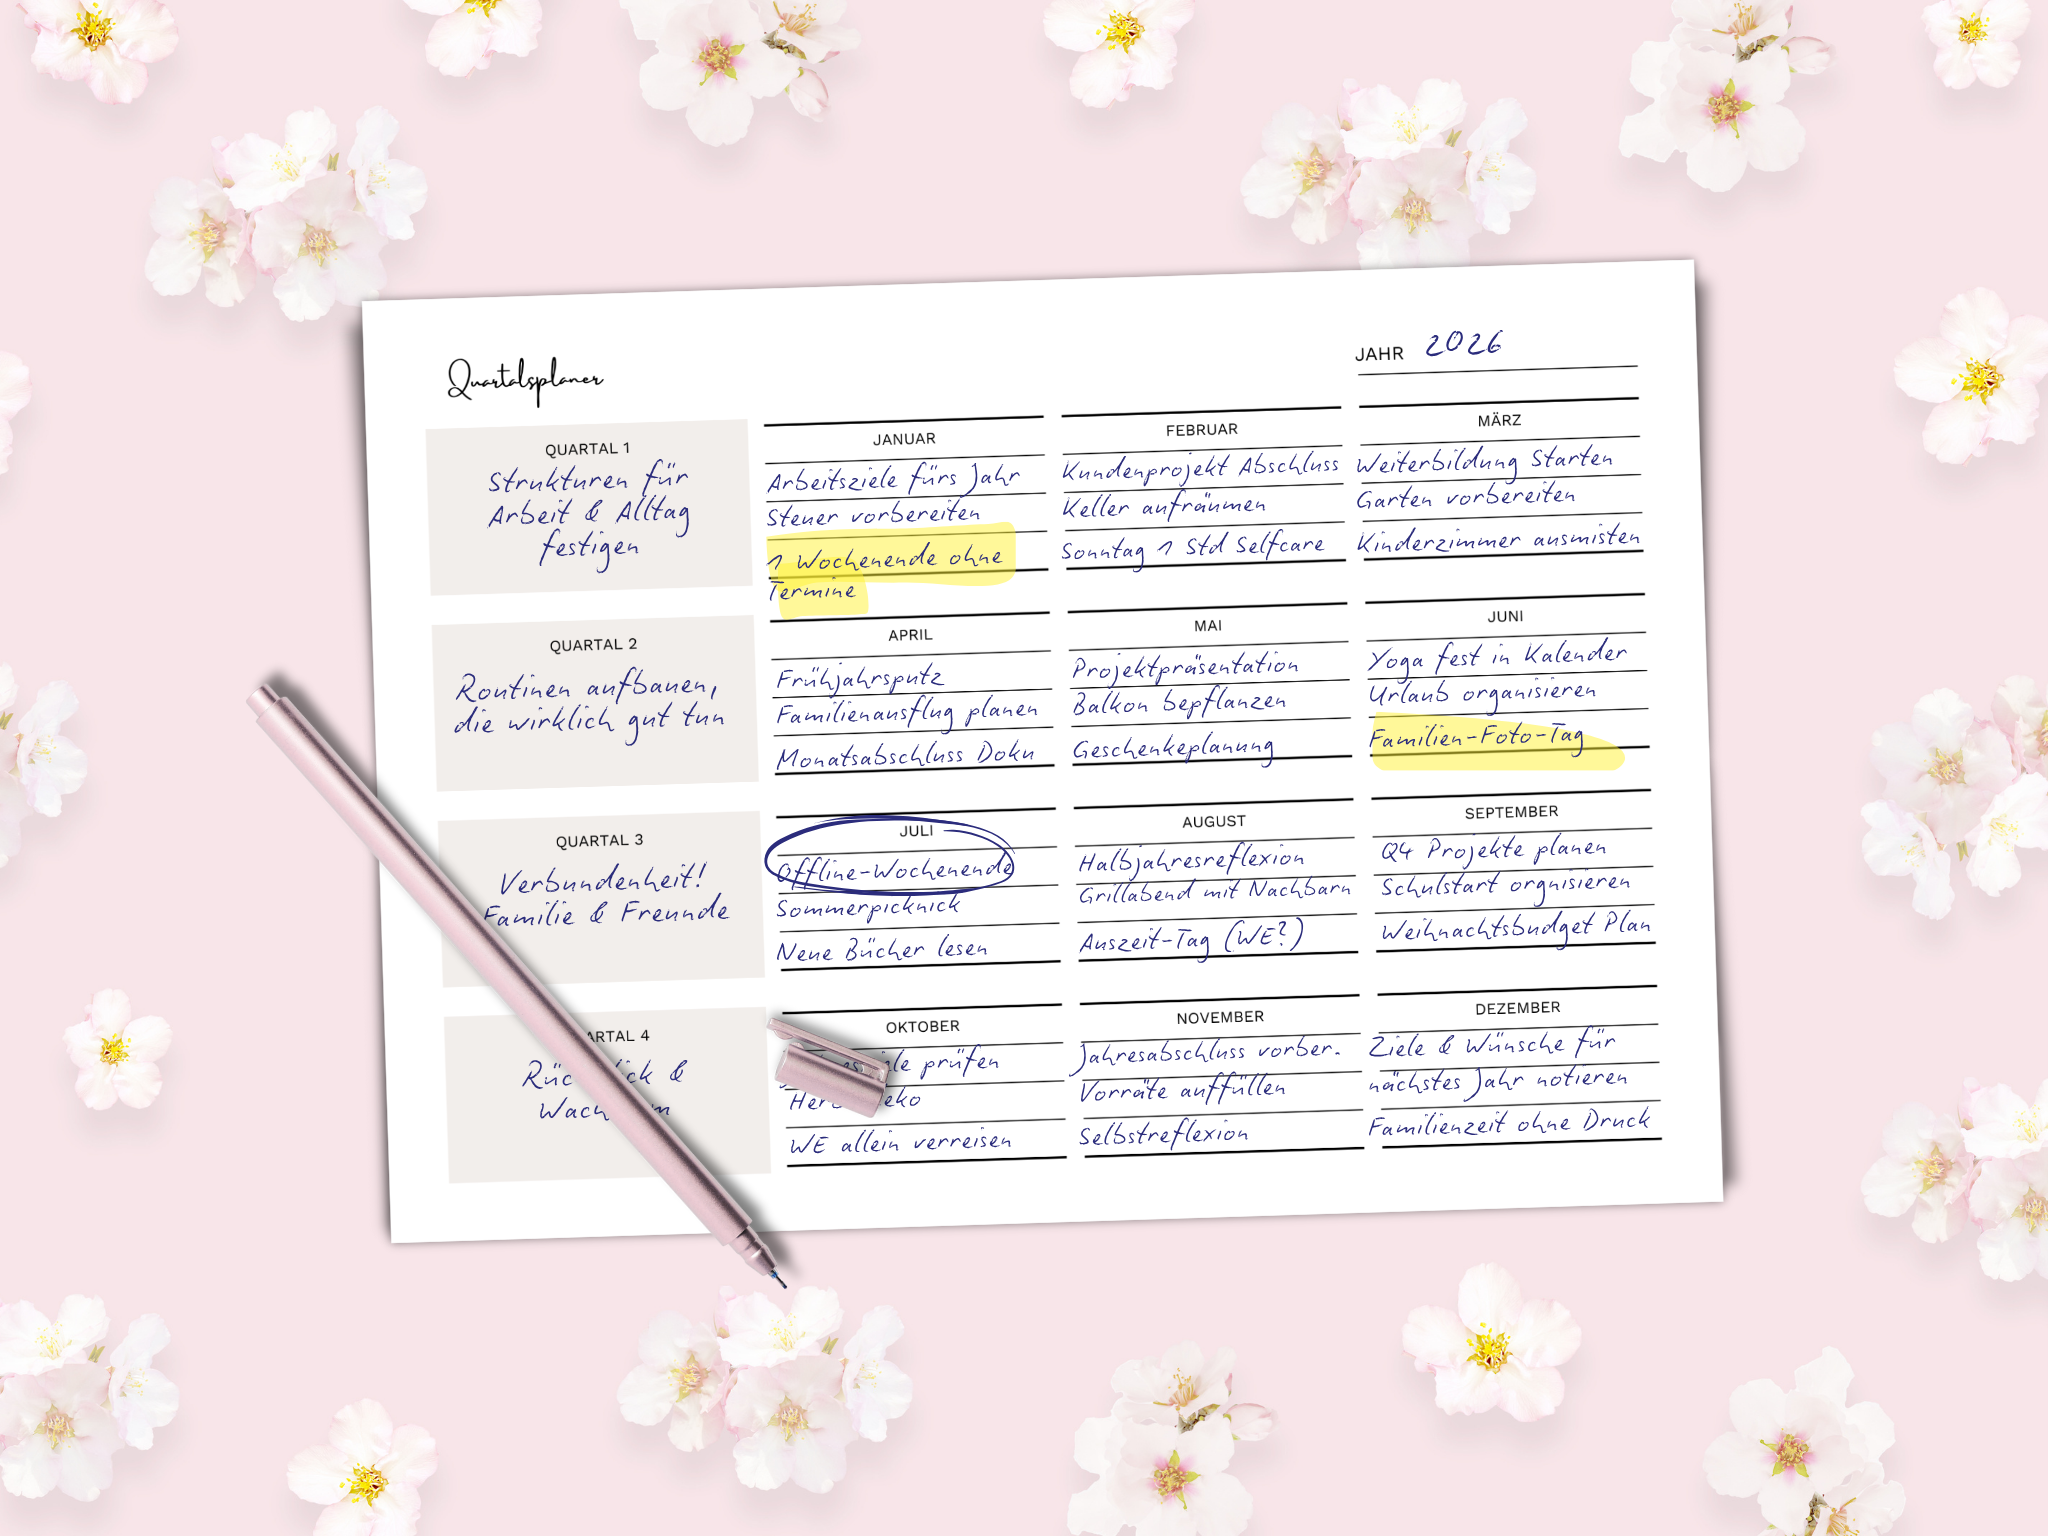 Quartalsplaner
JAHR 2026
QUARTAL 1
Strukturen für
Arbeit & Alltag
festigen
JANUAR
Arbeitsziele fürs Jahr
Steuer vorbereiten
1 Wochenende ohne
Termine
FEBRUAR
Kundenprojekt Abschluss
Keller aufräumen
Sonntag 1 Std Selfcare
MÄRZ
Weiterbildung Starten
Garten vorbereiten
Kinderzimmer ausmisten
QUARTAL 2
Routinen aufbauen,
die wirklich gut tun
APRIL
Frühjahrsputz
Familienausflug planen
Monatsabschluss Doku
MAI
Projektpräsentation
Balkon bepflanzen
Geschenkeplanung
JUNI
Yoga fest in Kalender
Urlaub organisieren
Familien-Foto-Tag
QUARTAL 3
Verbundenheit!
Familie & Freunde
JULI
Offline-Wochenende
Sommerpicknick
Neue Bücher lesen
AUGUST
Halbjahresreflexion
Grillabend mit Nachbarn
Auszeit-Tag (WE?)
SEPTEMBER
Q4 Projekte planen
Schulstart orgnisieren
Weihnachtsbudget Plan
4
&
OKTOBER
prüfen
WE allein verreisen
NOVEMBER
Jahresabschluss vorber.
Vorräte auffüllen
Selbstreflexion
DEZEMBER
Ziele & Wünsche für
nächstes Jahr notieren
Familienzeit ohne Druck